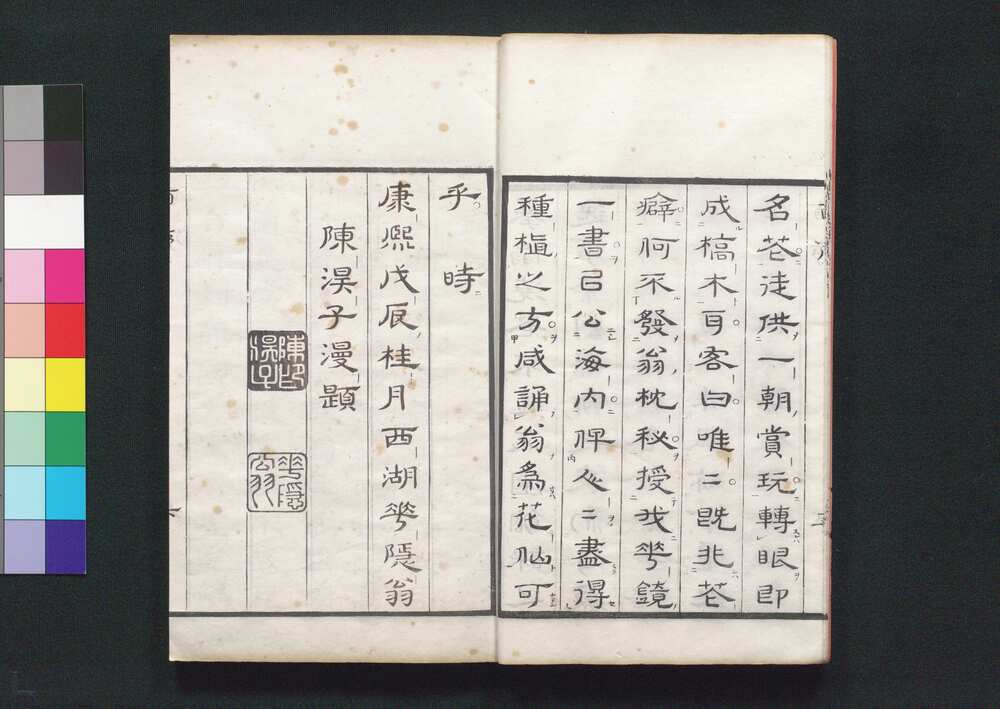 名芲徒供一朝賞玩轉眼即
成槁木耳客曰唯二既非芲
癖何不發翁枕秘授我華鏡
一書㠯公海内俾人二盡得
種植之方咸誦翁爲花仙可
乎時
康熙戊辰桂月西湖華隱翁
陳淏子漫題
陳印淏子
華隱翁